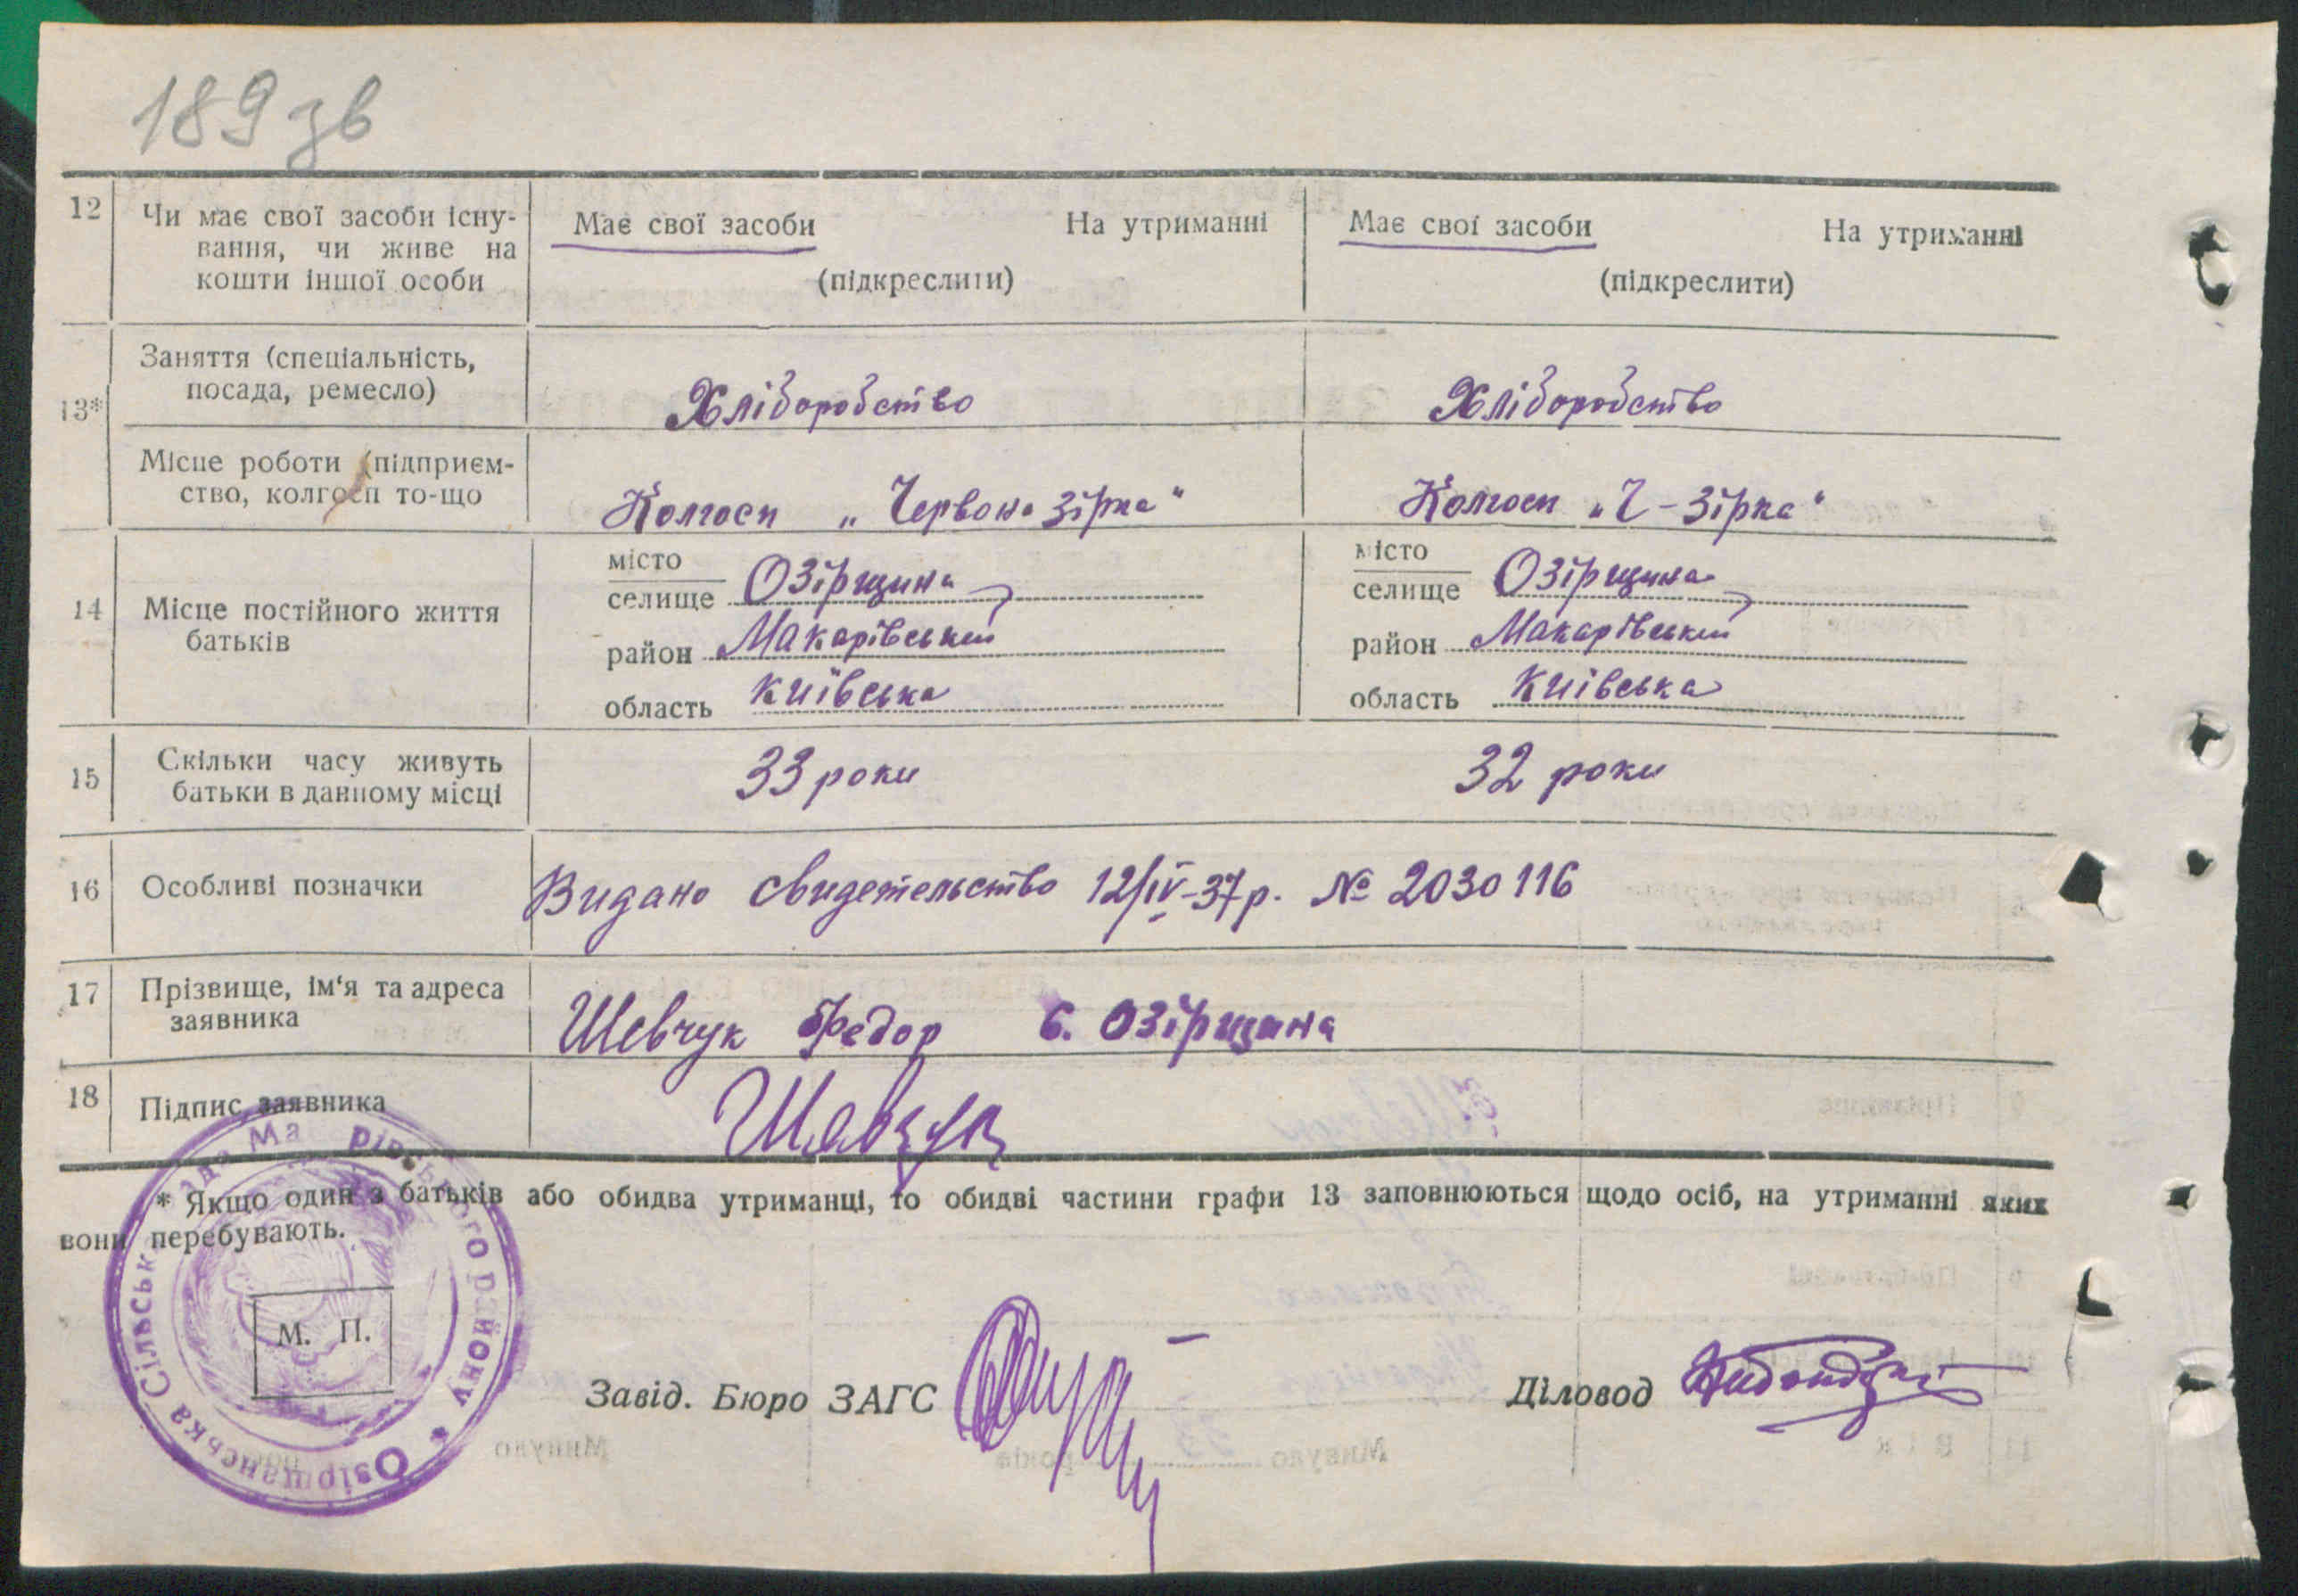 189 зв
12 Чи має свої засоби існу-
вання, чи живе на
кошти іншої особи
Має свої засоби На утриманні
(підкреслити)
Має свої засоби На утриманні
(підкреслити)
13*
Заняття (спеціальність,
посада, ремесло)
Хліборобство
Хліборобство
Місце роботи (підприєм-
ство, колгосп то-що
Колгосп „Червона зірка"
Колгосп „Ч-зірка"
14 Місце постійного життя
батьків
місто
селище Озірщина
район Макарівський
область Київська
місто
селище Озірщина
район Макарівський
область Київська
15 Скільки часу живуть
батьки в данному місці
33 роки
32 роки
16 Особливі позначки
Видано свидетельство 12/IV-37р. № 2030116
17 Прізвище, ім'я та адреса
заявника
Шевчук Федор с. Озірщина
18 Підпис заявника
Шевчук
* Якщо один з батьків або обидва утриманці, то обидві частини графи 13 заповнюються щодо осіб, на утриманні яких
вони перебувають.
М. П.
Озірщанська Сільська Рада Макарівського району
Завід. Бюро ЗАГС
Діловод